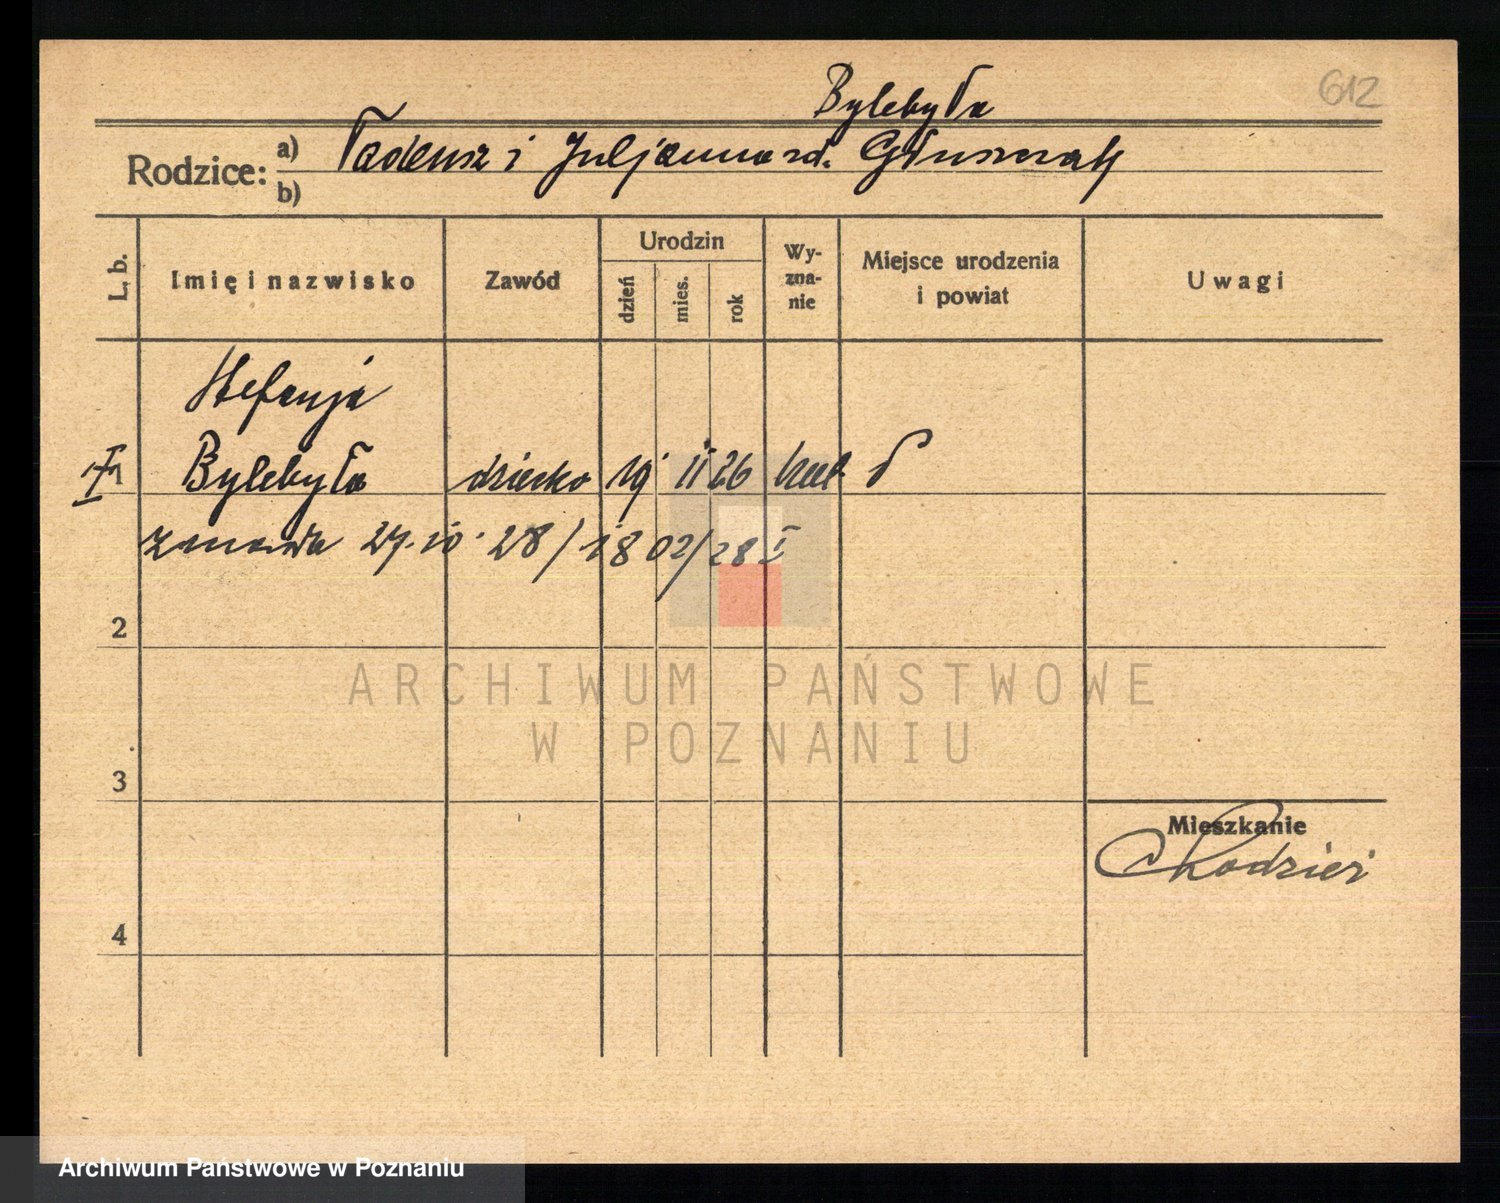 612
Bylebyła
Rodzice: a) Tadeusz i Juljanna zd. Głuszczak
b)
L. b. Imię i nazwisko Zawód Urodzin dzień mies. rok Wy-zna-nie Miejsce urodzenia i powiat Uwagi
Stefanja
1 Bylebyła dziecko 19 11 26 kat P
zmarła 27.10.28/1802/28 I
2
ARCHIWUM PAŃSTWOWE
W POZNANIU
3
Mieszkanie
4
Archiwum Państwowe w Poznaniu